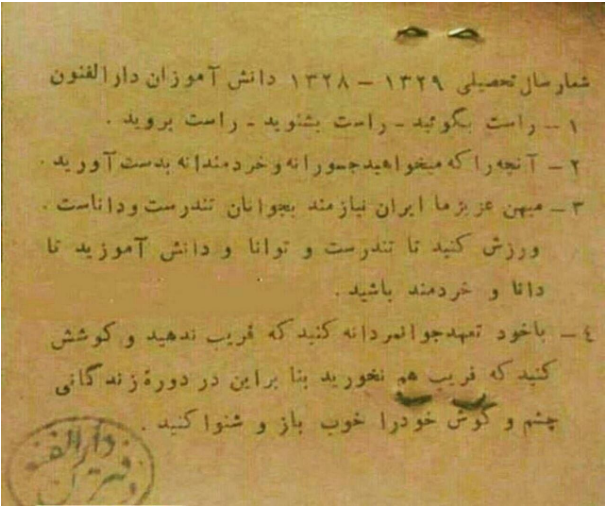 شعار سال تحصیلی ۱۳۲۹ – ۱۳۲۸ دانش آموزان دارالفنون
۱ – راست بگوئید – راست بشنوید – راست بروید .
۲ – آنچه را که میخواهید جسورانه و خردمندانه بدست آورید .
۳ – میهن عزیز ما ایران نیازمند بجوانان تندرست و داناست .
ورزش کنید تا تندرست و توانا و دانش آموزید تا
دانا و خردمند باشید .
٤ – باخود تعهد جوانمردانه کنید که فریب ندهید و کوشش
کنید که فریب هم نخورید بنا براین در دورهٔ زندگانی
چشم و گوش خودرا خوب باز و شنوا کنید .
دارالفنون
دفتر